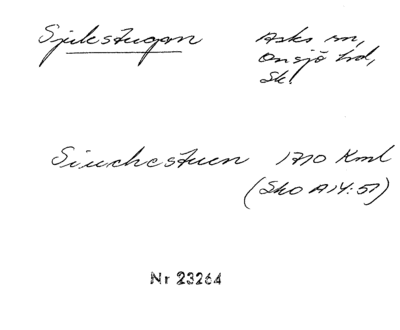 Sjukstugan Asks sn,
Onsjö hd,
Sk.
Siuchestuen 1710 Kml
(Sko A14:51)
Nr 23264